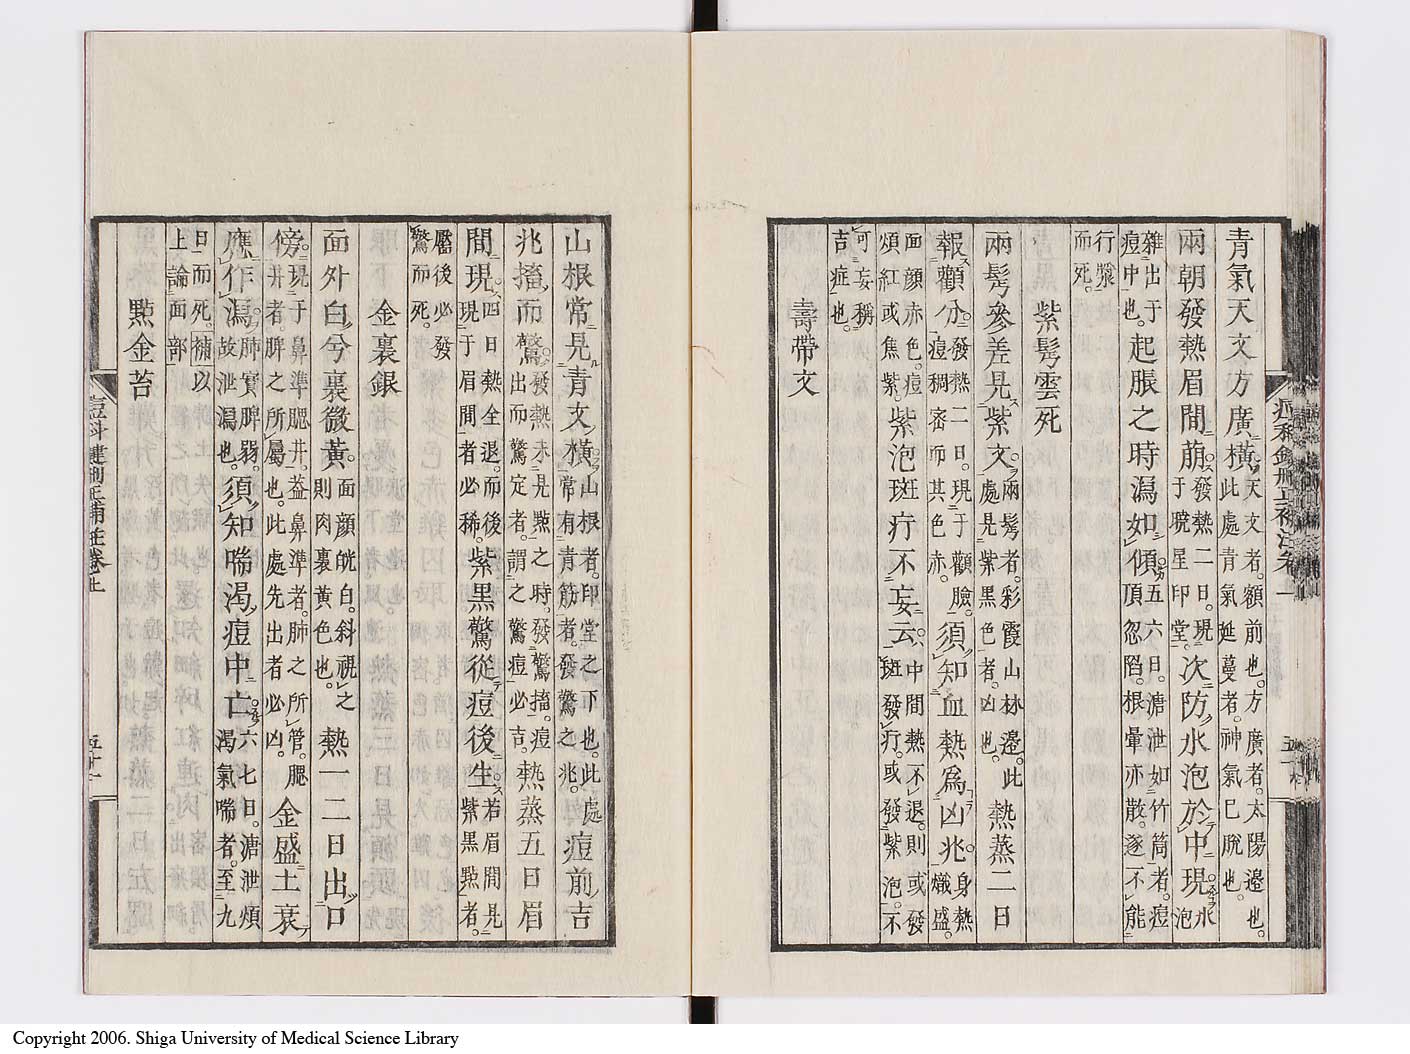 青氣天文方廣橫天文者。額前也。方廣者。太陽邊也。此處青氣延蔓者。神氣巳脫也。
兩朝發熱眉間崩發熱二日。現于星印堂。次防水泡於中現水泡
雜出于痘中也。起脹之時瀉如傾五六日。溏泄如竹筒者。痘頂忽陷。根暈亦散。遂不能
行漿而死。
紫髣雲死
兩髣參差見紫文兩髣者。彩霞山林邊。此處見紫黑色者。凶也。熱蒸二日
報顴分發熱二日。現于顴臉。痘稠密而其色赤。須知血熱爲凶兆身熱熾盛。
面顏赤色。痘煩紅或焦紫。紫泡斑疔不妄云中間熱不退。則或發斑發疔。或發紫泡。不
可妄稱吉症也。
壽帶文
山根常見青文橫山根者。印堂之下也。此處常有青筋者。發驚之兆。痘前吉
兆搐而驚發熱未見點之時。發驚搐。痘出而驚定者。謂之驚痘必吉。熱蒸五日眉
間現四日熱全退。而後現于眉間者必稀。紫黑驚從痘後生若眉間見紫黑點者。
靨後必發驚而死。
金裏銀
面外白兮裏微黃面顏㿠白。斜視之則肉裏黃色也。熱一二日出口
傍現于鼻準腮井。葢鼻準者。肺之所管。腮井者。脾之所屬也。此處先出者必凶。金盛土衰
應作瀉肺實脾弱。故泄瀉也。須知喘渴痘中亡六七日。溏泄煩渴氣喘者。至九
日而死。補以上論面部
點金苔
痘科鍵刪正補註卷上 五十一
Copyright 2006. Shiga University of Medical Science Library